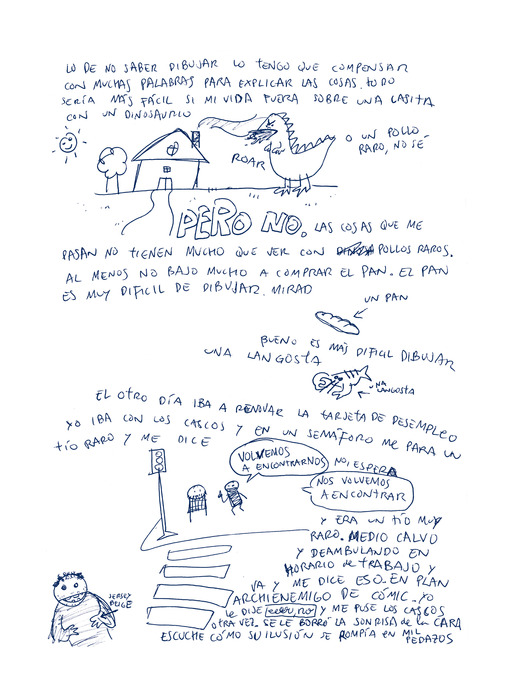 LO DE NO SABER DIBUJAR LO TENGO QUE COMPENSAR
CON MUCHAS PALABRAS PARA EXPLICAR LAS COSAS. TODO
SERÍA MÁS FÁCIL SI MI VIDA FUERA SOBRE UNA CASITA
CON UN DINOSAURIO
O UN POLLO
RARO, NO SÉ
ROAR
PERO NO. LAS COSAS QUE ME
PASAN NO TIENEN MUCHO QUE VER CON POLLOS RAROS.
AL MENOS NO BAJO MUCHO A COMPRAR EL PAN. EL PAN
ES MUY DIFICIL DE DIBUJAR. MIRAD
UN PAN
BUENO ES MÁS DIFICIL DIBUJAR
UNA LANGOSTA
UNA
LANGOSTA
EL OTRO DÍA IBA A RENOVAR LA TARJETA DE DESEMPLEO
YO IBA CON LOS CASCOS Y EN UN SEMÁFORO ME PARA UN
TÍO RARO Y ME DICE
VOLVEMOS
A ENCONTRARNOS
NO, ESPERA
NOS VOLVEMOS
A ENCONTRAR
Y ERA UN TÍO MUY
RARO. MEDIO CALVO
Y DEAMBULANDO EN
HORARIO DE TRABAJO Y
VA Y ME DICE ESO. EN PLAN
ARCHIENEMIGO DE CÓMIC. YO
LE DIJE NO Y ME PUSE LOS CASCOS
OTRA VEZ. SE LE BORRÓ LA SONRISA DE LA CARA
ESCUCHE CÓMO SU ILUSIÓN SE ROMPÍA EN MIL
PEDAZOS
JERSEY
BEIGE